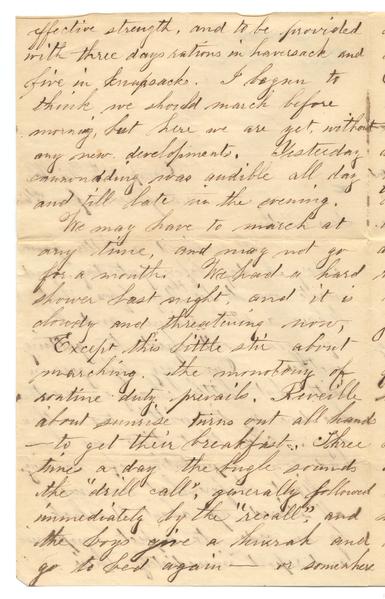 effective strength, and to be provided
with three days rations in haversack and
five in knapsacks. I began to
think we should march before
morning, but here we are yet, without
any new developments. Yesterday
cannonading was audible all day
and till late in the evening.
We may have to march at
any time, and may not go
for a month. We had a hard
shower last night, and it is
cloudy and threatening now,
Except this little stir about
marching, the monotony of
routine duty prevails. Reveille
about sunrise turns out all hands
— to get their breakfast. Three
times a day the bugle sounds
the "drill call", generally followed
immediately by the "recall" and
the boys give a hurrah and
go to bed again — or somewhere